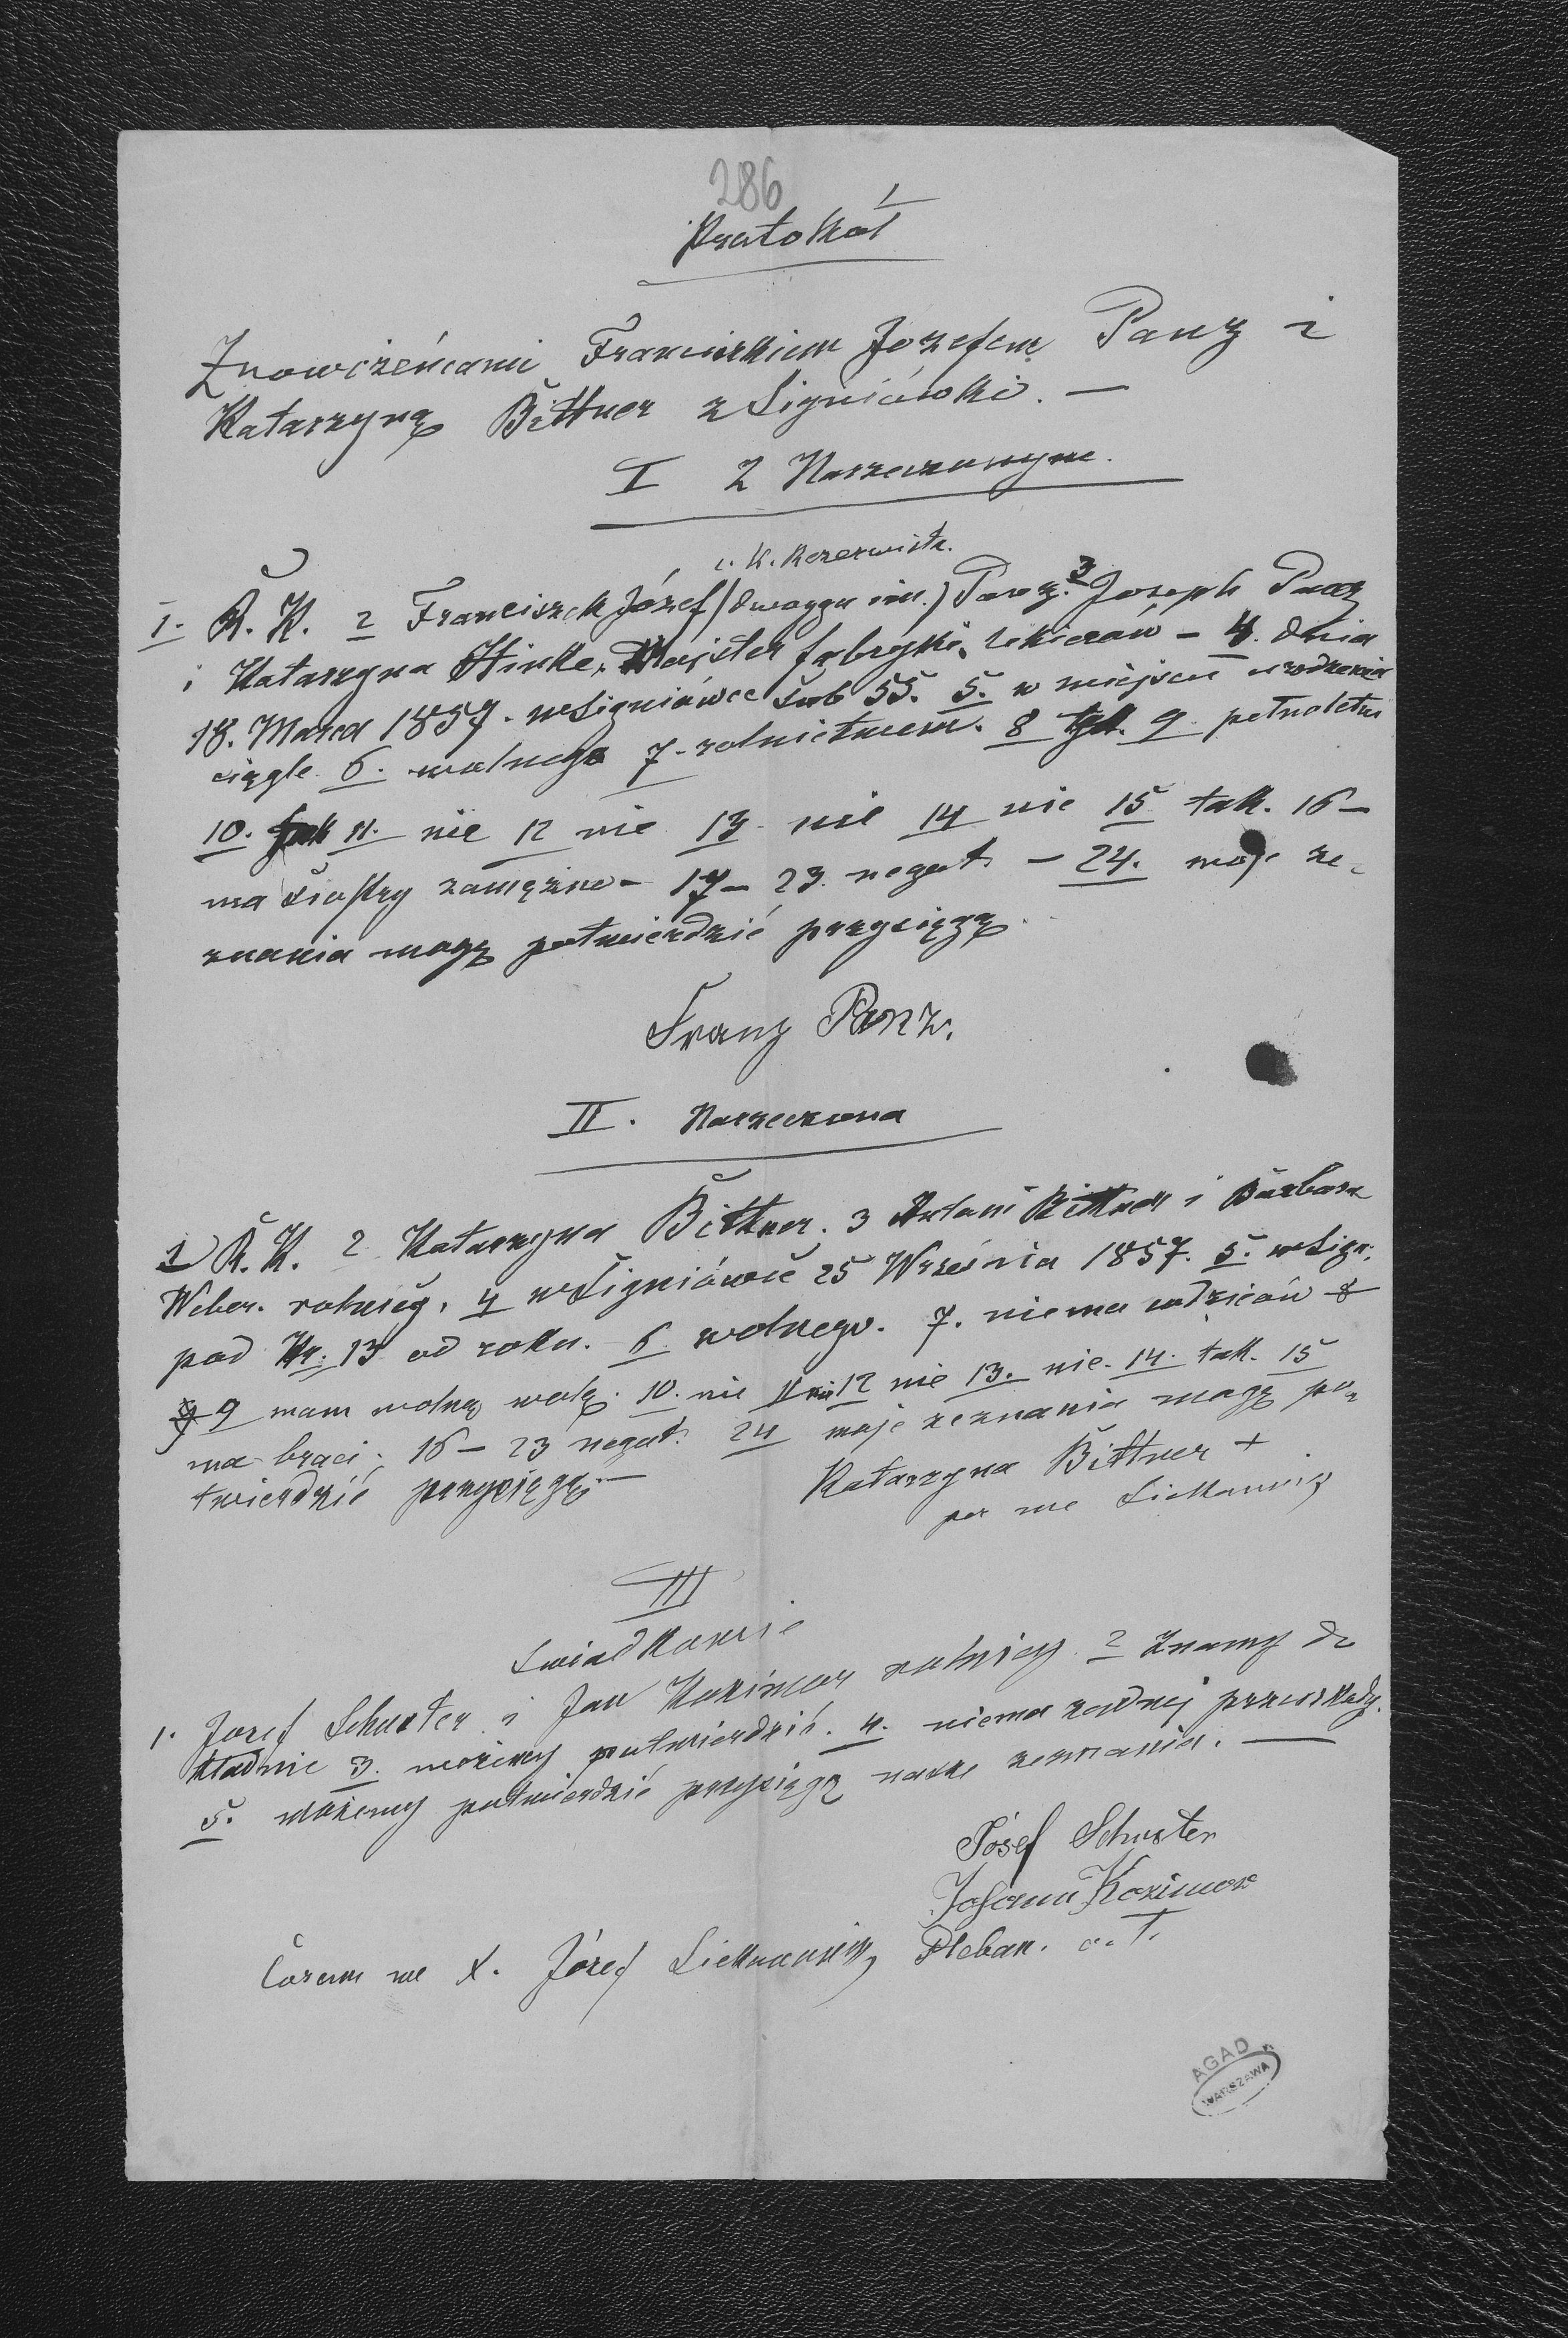 286
Protokół
Znowożeńcami Franciszkiem Józefem Panz i
Katarzyną Bittner z Ligniówki. —
I Z Narzeczonym.
c. k. Rezerwista.
1. R. K. 2 Franciszek Józef (dwojga im.) Panz. 3 Joseph Panz
i Katarzyna Hinke, Majster fabryki, cukierów – 4. dnia
18. Marca 1857. w Ligniówce sub 55. 5. w miejscu urodzenia
ciągle. 6. wolnego 7. rolnictwem. 8 tak. 9. pełnoletni
10. tak 11. nie 12 nie 13. nie 14 nie 15 tak. 16 –
ma siostry zamężne – 17 – 23. negat. – 24. moje ze-
znania mogę potwierdzić przysięgą.
Franz Panz.
II. Narzeczona
1 R. K. 2 Katarzyna Bittner. 3 Antoni Bittner i Barbara
Weber. rolnicy. 4 w Ligniówce 25 Września 1857. 5. w Lign:
pod Nr. 13 od roku. 6. wolnego. 7. niema rodziców 8
9 mam wolną wolę. 10. nie 11 nie 12 nie 13. nie. 14. tak. 15
ma braci; 16 – 23 negat. 24 moje zeznania mogę po-
twierdzić przysięgą. —
Katarzyna Bittner +
per me
III
Świadkowie
1. Józef Schuster i Jan rolnicy 2 Znamy do
kładnie 3. możemy potwierdzić. 4. niema żadnej przeszkody.
5. możemy potwierdzić przysięgą nasze zeznania. —
Josef Schuster
Johann
Coram me X. Józef Pleban. o. ł.
AGAD
WARSZAWA